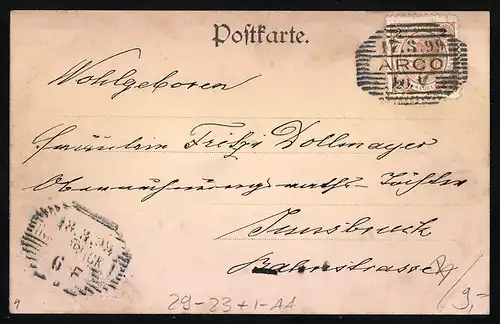 Postkarte.
17 3 99
ARCO
Wohlgeboren
Fräulein Fritzi Dollmayer
Oberrechnungsraths-Tochter
Innsbruck
Bahnstrasse
18.3.99
6 F
29-23+1-A4
9,-